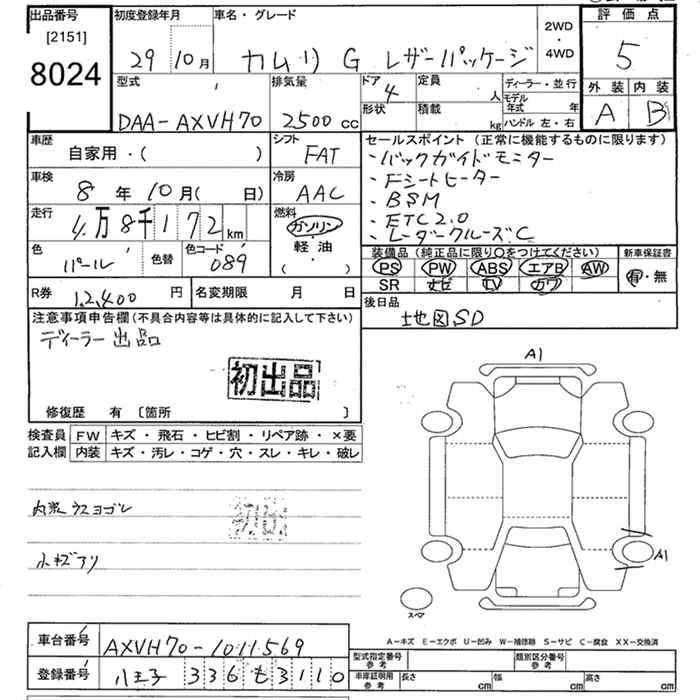 出品番号 初度登録年月 車名・グレード 評価点
[2151]
8024
29 10月 カムリ G レザーパッケージ 2WD・4WD 5
型式 排気量 ドア 定員 人 ディーラー・並行 外装 内装
DAA-AXVH70 2500cc 4 形状 積載 kg モデル年式 年 ハンドル 左・右 A B
車歴 シフト セールスポイント (正常に機能するものに限ります)
自家用・( ) FAT ・バックガイドモニター
車検 冷房 ・Fシートヒーター
8年10月( 日) AAC ・BSM
走行 燃料 ・ETC2.0
4万8千172km ガソリン ・レーダークルーズC
色 色替 色コード 軽油 装備品 (純正品に限り○をつけてください) 新車保証書
パール 089 ・( ) PS PW ABS エアB AW 有・無
SR ナビ TV カワ
R券 12,400円 名変期限 月 日 後日品
地図SD
注意事項申告欄 (不具合内容等は具体的に記入して下さい)
ディーラー出品
初出品
修復歴 有 〔箇所 〕
A1
検査員 FW キズ・飛石・ヒビ割・リペア跡・×要
記入欄 内装 キズ・汚レ・コゲ・穴・スレ・キレ・破レ
内装ウスヨゴレ 初出品
小キズアリ
A1
スペア
A-キズ E-エクボ U-凹み W-補修跡 S-サビ C-腐食 XX-交換済
車台番号 AXVH70-1011569
型式指定番号 参考 類別区分番号 参考
登録番号 八王子 336 も 3110
車庫証明用 参考 長さ cm 幅 cm 高さ cm